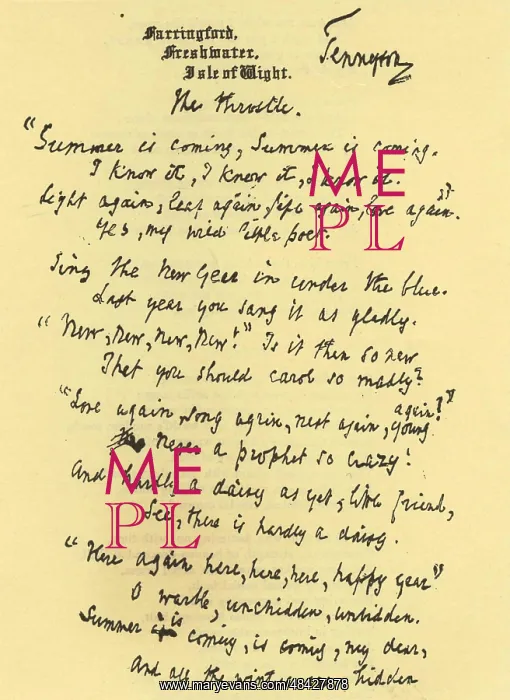 Farringford,
Freshwater,
Isle of Wight.
Tennyson
The Throstle.
"Summer is coming, Summer is coming.
I know it, I know it, I know it.
Light again, leaf again, life again, love again."
Yes, my wild little poet.
Sing the new year in under the blue.
Last year you sang it as gladly.
"New, new, new, new!" Is it then so new
That you should carol so madly?
"Love again, song again, nest again, young again!"
Never a prophet so crazy!
And hardly a daisy as yet, little friend,
See, there is hardly a daisy.
"Here again here, here, here, happy year"
O warble, unchidden, unbidden.
Summer is coming, is coming, my dear,
And all the winters hidden
ME
PL
ME
PL
www.maryevans.com/48427878